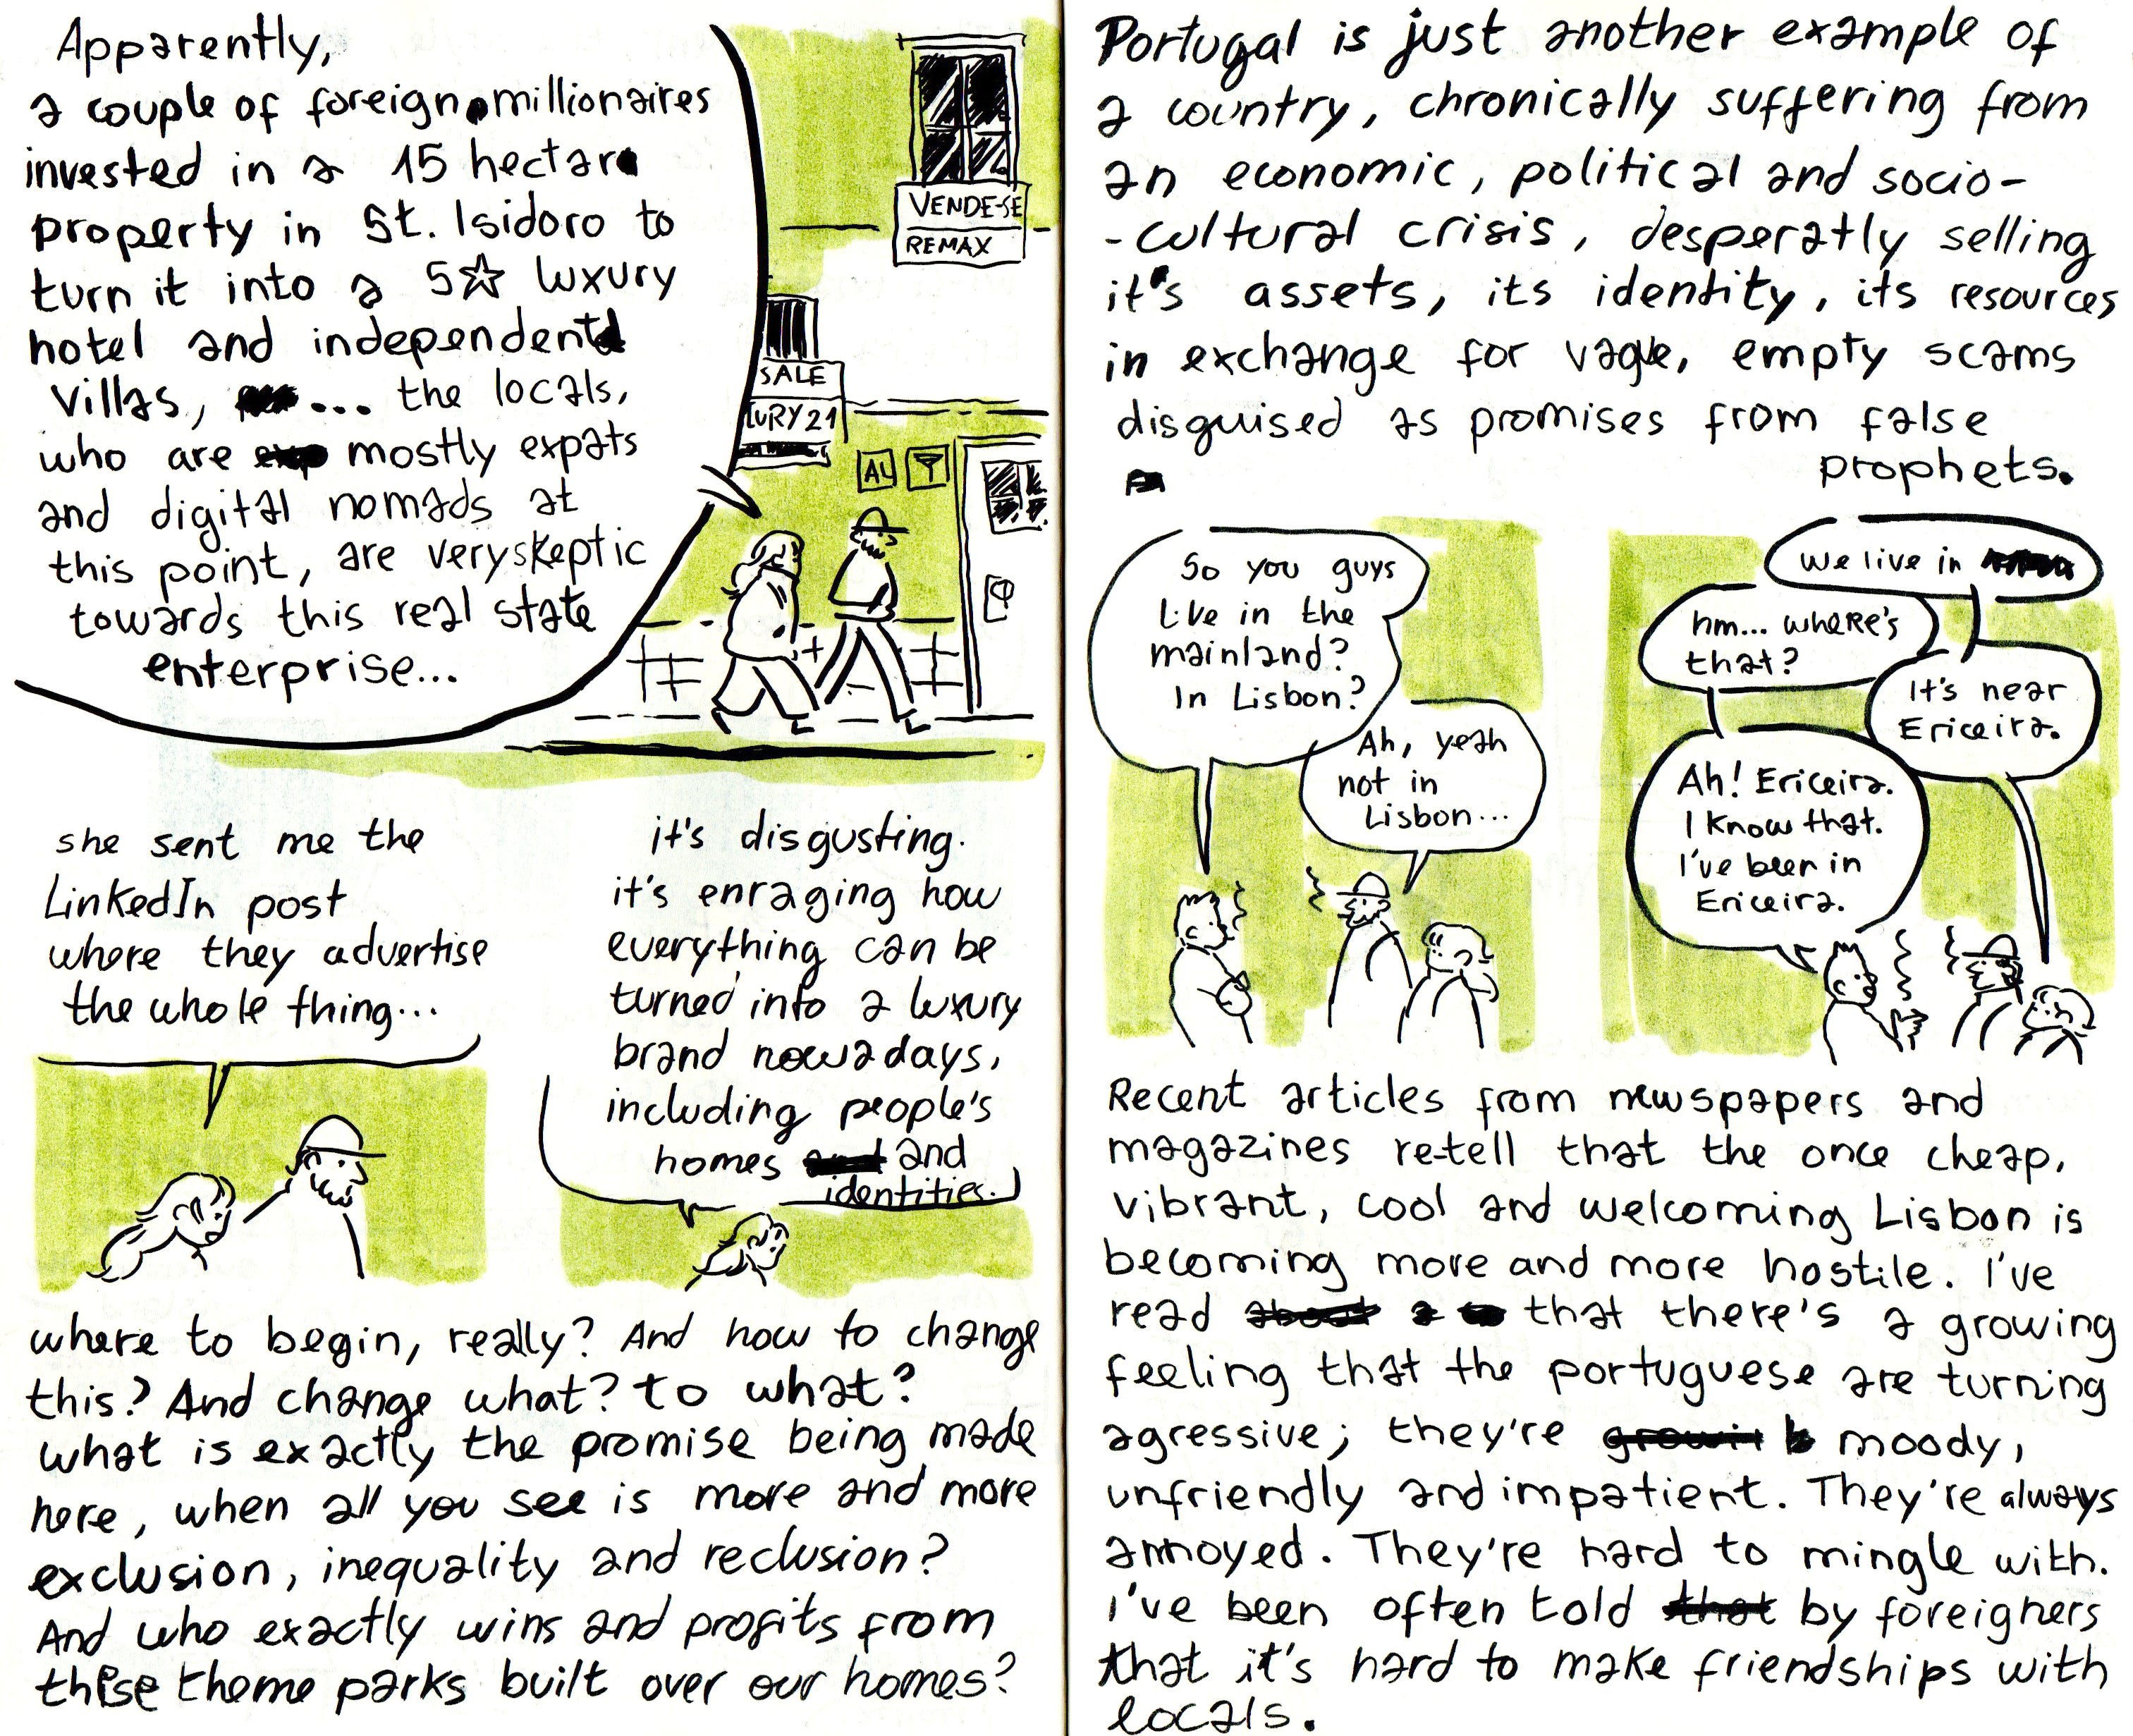 Apparently,
a couple of foreign millionaires
invested in a 15 hectare
property in St. Isidoro to
turn it into a 5☆ luxury
hotel and independent
villas, ... the locals,
who are mostly expats
and digital nomads at
this point, are very skeptic
towards this real state
enterprise...
VENDE-SE
REMAX
SALE
TURY 21
AL
she sent me the
LinkedIn post
where they advertise
the whole thing...
it's disgusting.
it's enraging how
everything can be
turned into a luxury
brand nowadays,
including people's
homes and
identities.
where to begin, really? And how to change
this? And change what? to what?
what is exactly the promise being made
here, when all you see is more and more
exclusion, inequality and reclusion?
And who exactly wins and profits from
these theme parks built over our homes?
Portugal is just another example of
a country, chronically suffering from
an economic, political and socio-
-cultural crisis, desperatly selling
it's assets, its identity, its resources
in exchange for vague, empty scams
disguised as promises from false
prophets.
So you guys
live in the
mainland?
In Lisbon?
Ah, yeah
not in
Lisbon...
We live in
hm... where's
that?
It's near
Ericeira.
Ah! Ericeira.
I know that.
I've been in
Ericeira.
Recent articles from newspapers and
magazines re-tell that the once cheap,
vibrant, cool and welcoming Lisbon is
becoming more and more hostile. I've
read that there's a growing
feeling that the portuguese are turning
agressive; they're moody,
unfriendly and impatient. They're always
annoyed. They're hard to mingle with.
I've been often told by foreigners
that it's hard to make friendships with
locals.